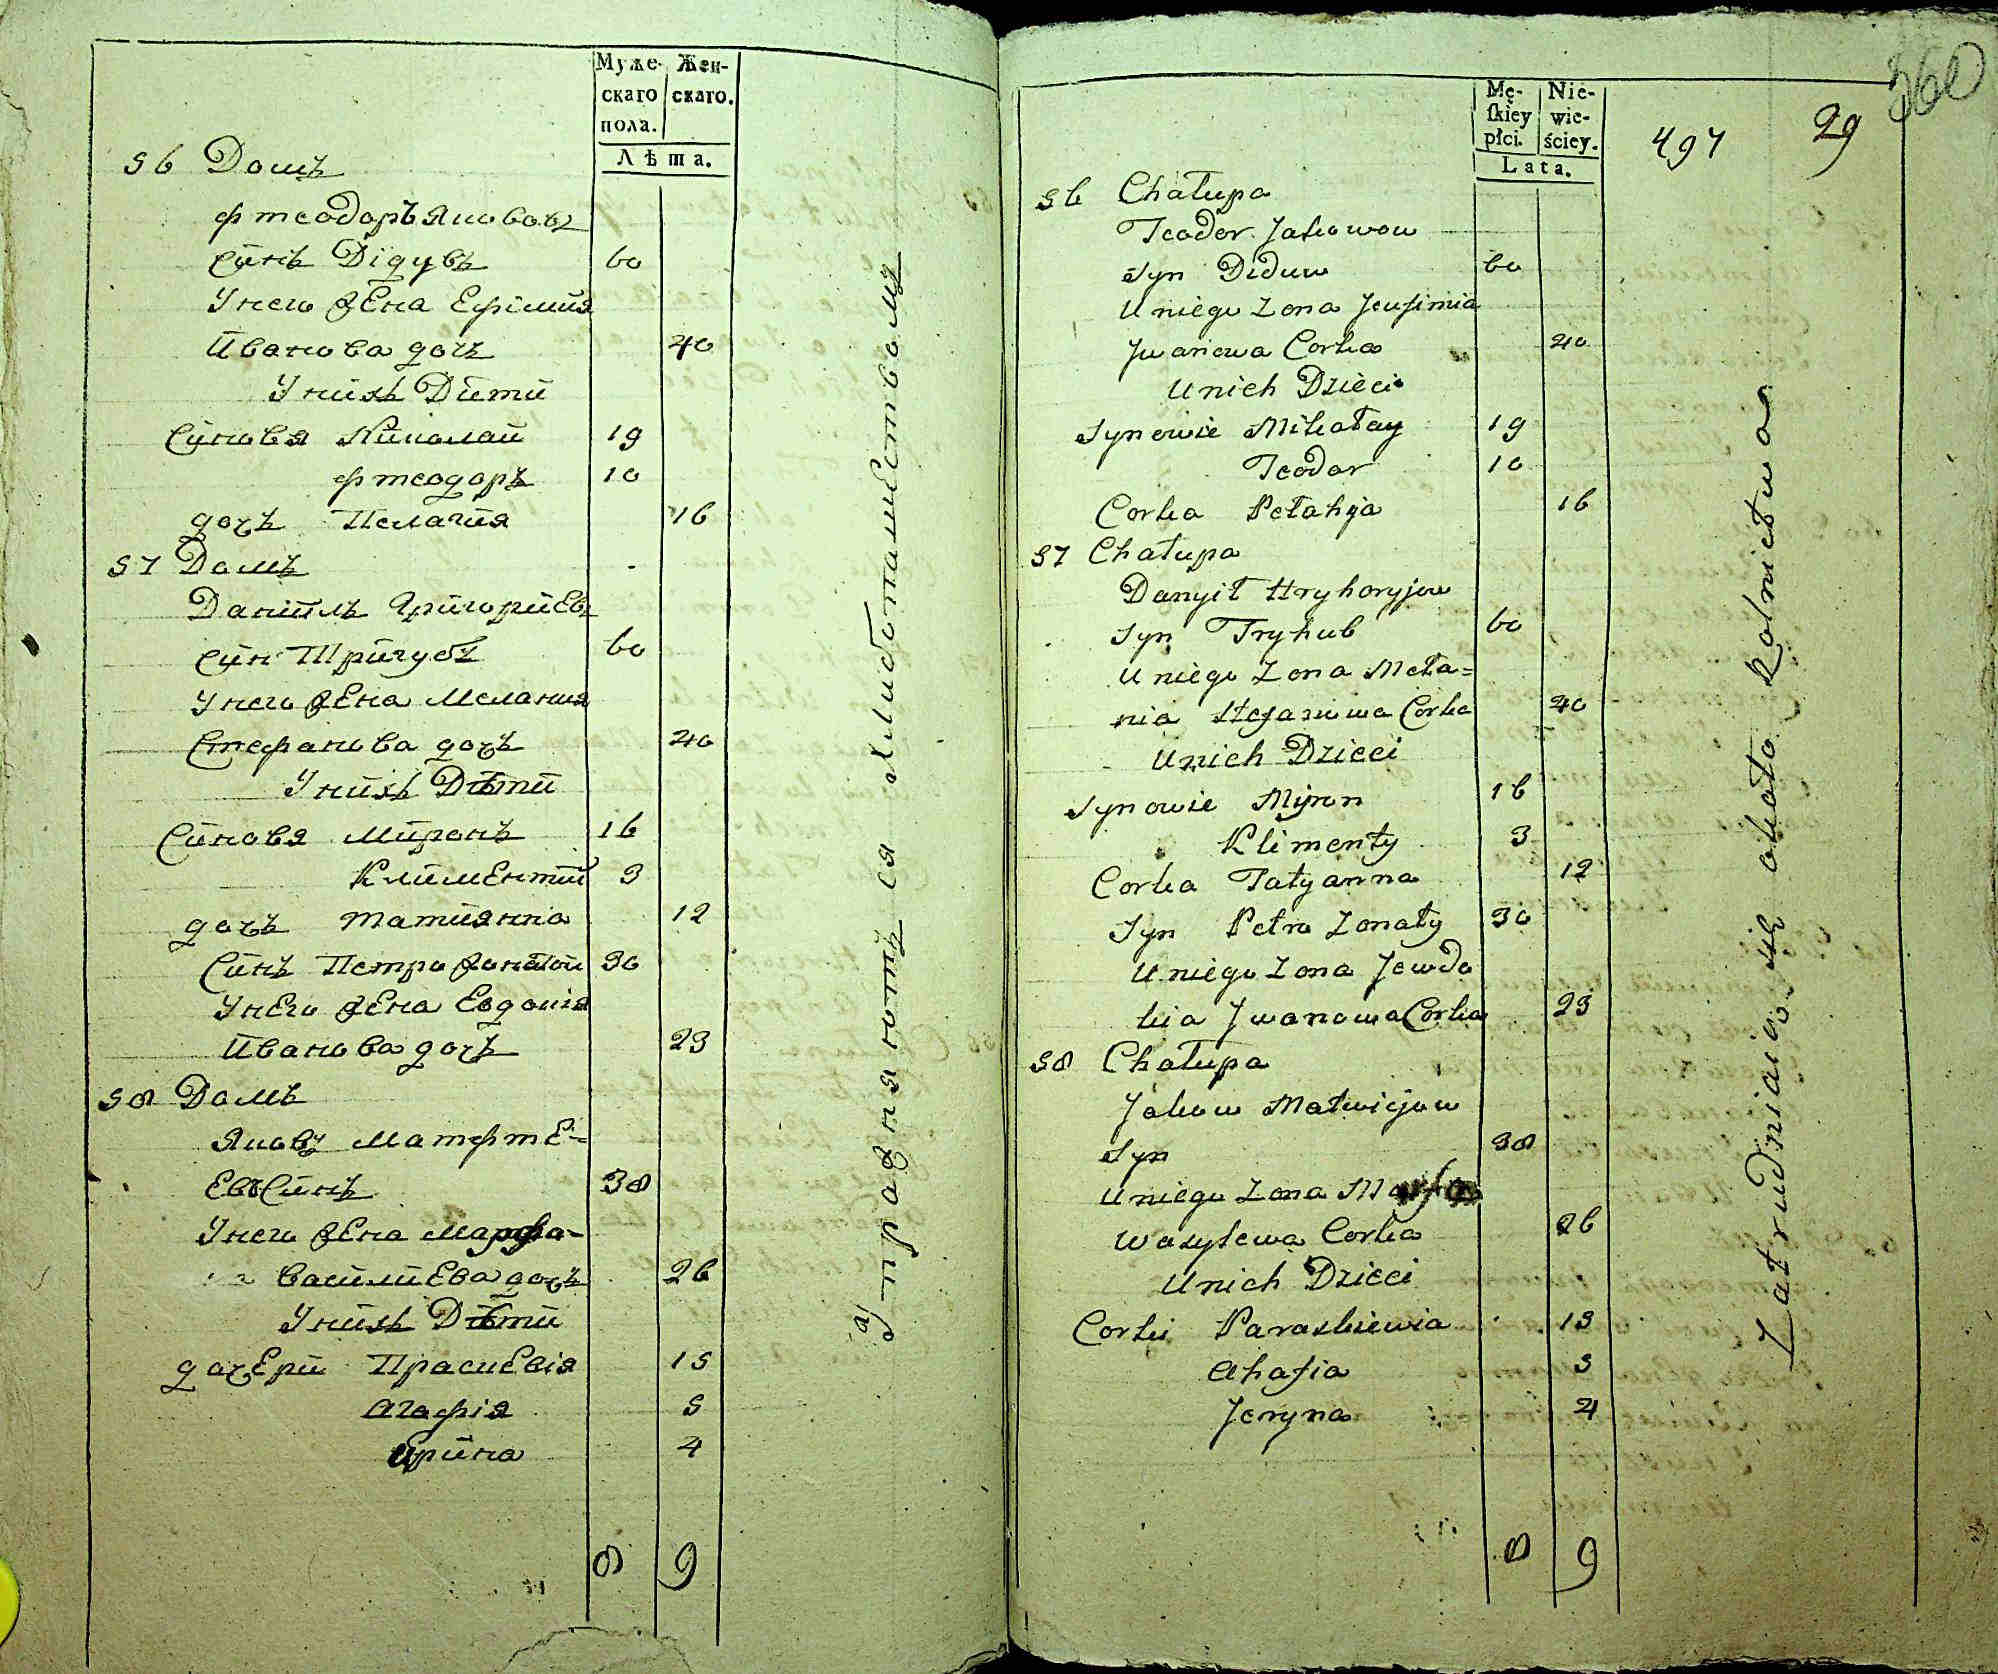 Муже- Жен-
скаго скаго.
пола.
Лѣта.
56 Домъ
Фтеодоръ Яковов
Синъ Дідувъ 60
У него жена Ефімия
Иванова дочъ 40
У нихъ Дѣти
Синовя Николай 19
Фтеодоръ 10
дочъ Пелагия 16
57 Домъ
Данiилъ Григориев
Син Тригубъ 60
У него жена Мелания
Стефанова дочъ 40
У нихъ Дѣти
Синовя Миронъ 16
Климентий 3
дочъ Татиянна 12
Синъ Петро жонатой 30
У него жена Евдокiя
Иванова дочъ 23
58 Домъ
Яковъ Матфте-
евъ Синъ 38
У него жена Марфа-
Василиева дочъ 26
У нихъ Дѣти
дочери Праскевiя 15
Агафiя 5
Ирина 4
8 9
Упражняютъ ся Хлибопашествомъ
Mę- Nie-
skiey wie-
płci. ściey.
Lata.
497 29
360
56 Chałupa
Teodor Jakowow
Syn Diduw 60
U niego Zona Jeufimia
Jwanowa Corka 40
U nich Dzieci
Synowie Mikołay 19
Teodor 10
Corka Pełahija 16
57 Chałupa
Danyił Hryhoryjow
Syn Tryhub 60
U niego Zona Meła=
nia Stefanowa Corka 40
U nich Dzieci
Synowie Myron 16
Klimenty 3
Corka Tatyanna 12
Syn Petro Zonaty 30
U niego Zona Jewdo
kia Jwanowa Corka 23
58 Chałupa
Jakow Matwiejow
Syn 38
U niego Zona Marfa
Wasylewa Corka 26
U nich Dzieci
Corki Paraskiewia 15
Ahafia 5
Jeryna 4
8 9
Zatrudniaią się okoto Rolnictwa